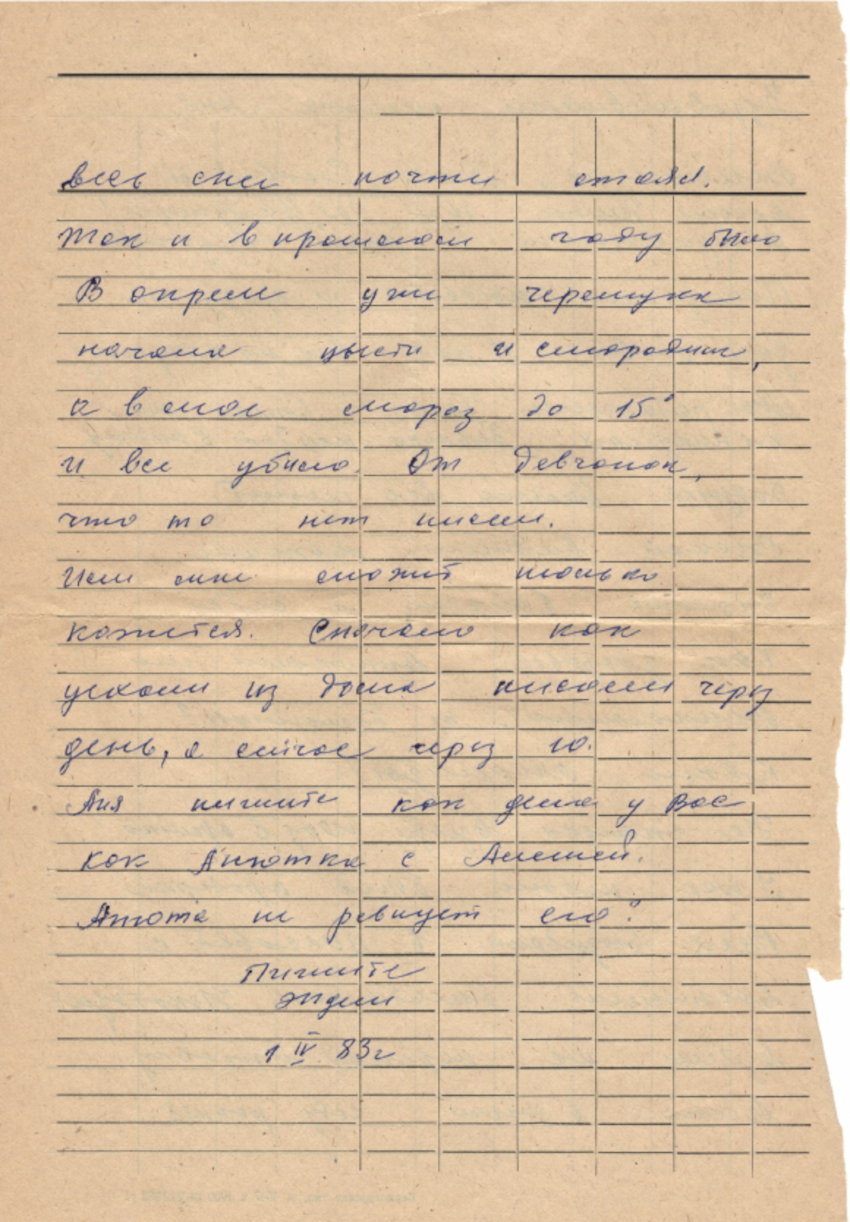 весь снег почти стаял.
Так и в прошлом году было
В апреле уже черемуха
начала цвести и смородина,
а в мае мороз до 15°
и все убило. От девчонок,
что то нет писем.
Или мне может только
кажется. Сначала как
уехали из дома писали через
день, а сейчас через 10.
Аня пишите как дела у Вас
как Анютка с Алешей.
Анюта не ревнует его?
Пишите
Ждем
1 IV 83г